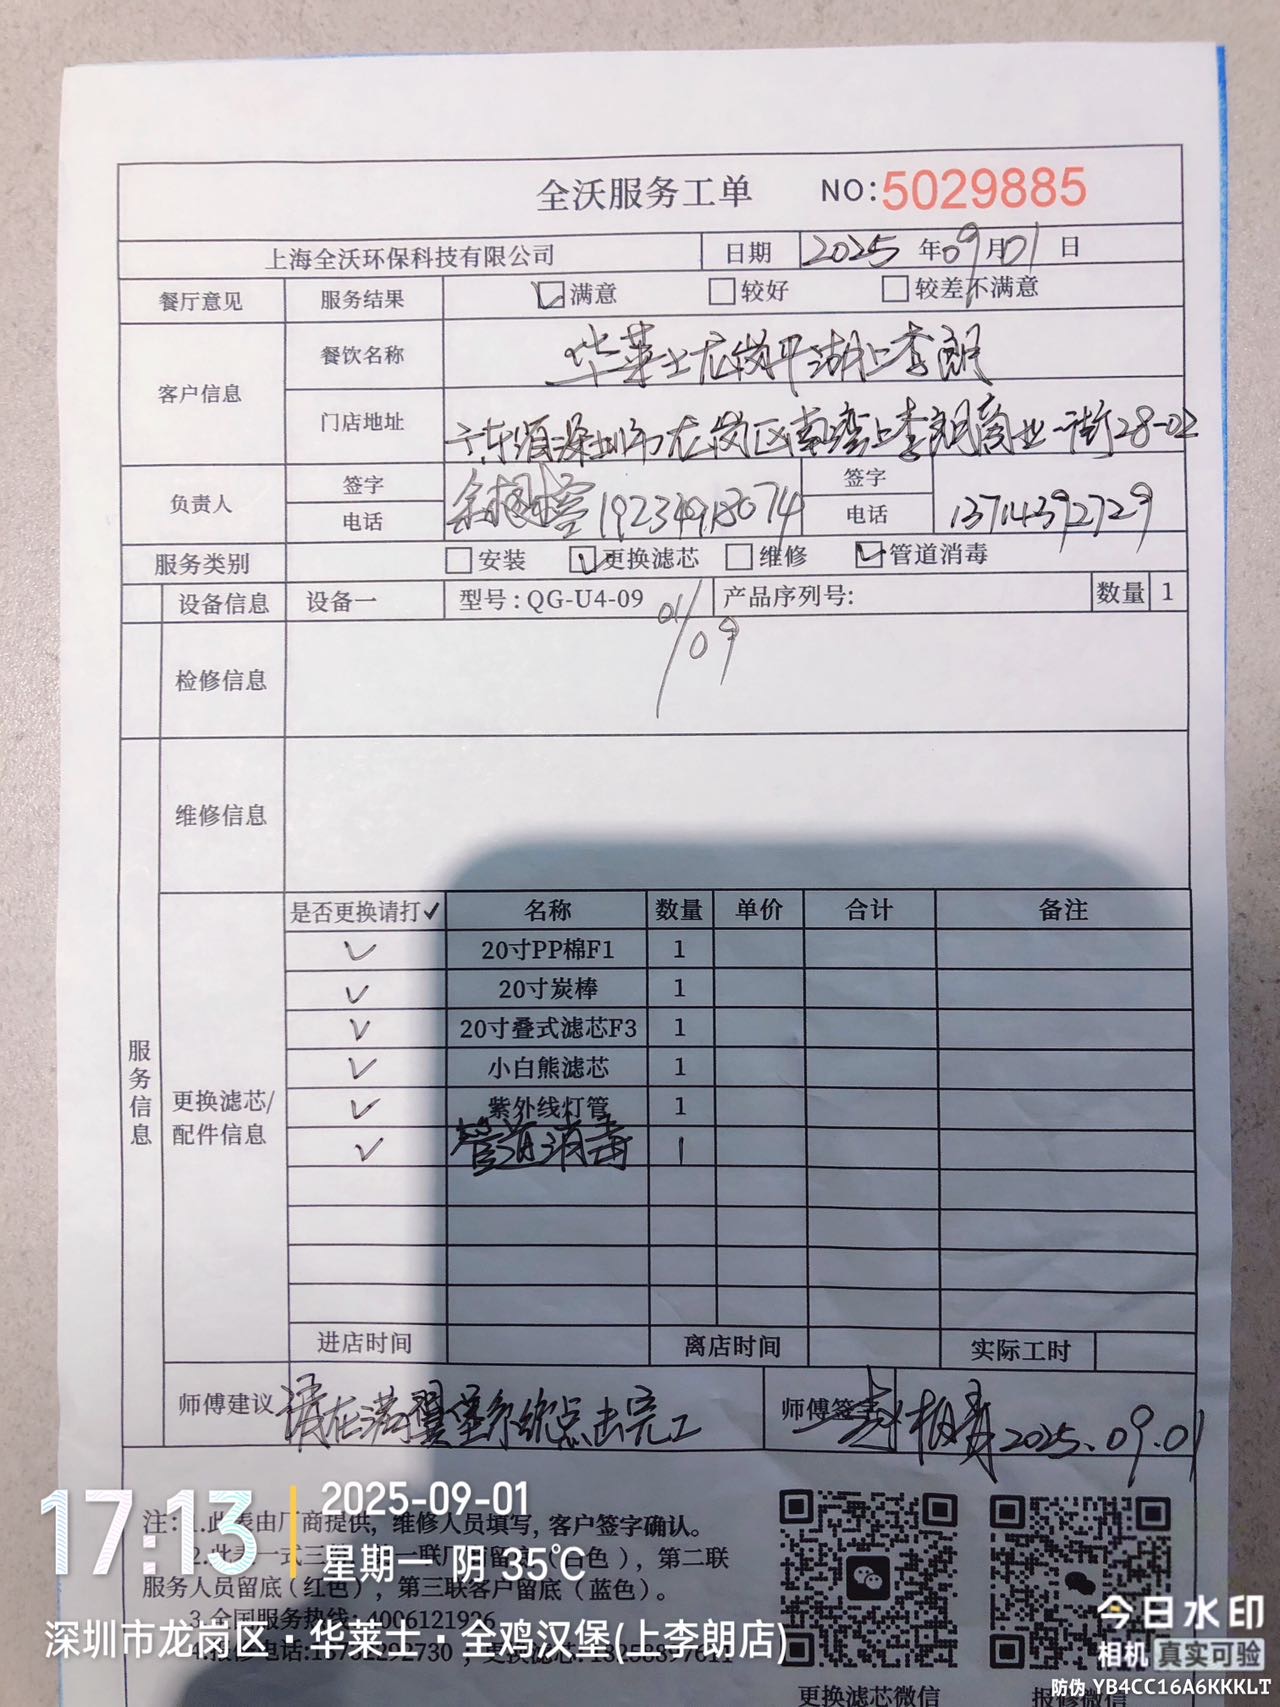 全沃服务工单 NO:5029885
上海全沃环保科技有限公司 日期 2025年09月01日
餐厅意见 服务结果 满意 较好 较差不满意
客户信息 餐饮名称 华莱士龙岗平湖上李朗
门店地址 广东省深圳市龙岗区南湾上李朗商业一街28-02
负责人 签字 签字
电话 19234918074 电话 13714392729
服务类别 安装 更换滤芯 维修 管道消毒
设备信息 设备一 型号:QG-U4-09 产品序列号: 数量 1
01/09
检修信息
维修信息
服务信息
更换滤芯/配件信息
是否更换请打✓ 名称 数量 单价 合计 备注
✓ 20寸PP棉F1 1
✓ 20寸炭棒 1
✓ 20寸叠式滤芯F3 1
✓ 小白熊滤芯 1
✓ 紫外线灯管 1
✓ 管道消毒 1
进店时间 离店时间 实际工时
师傅建议 请在满翼堡系统点击完工 师傅签字 2025.09.01
注:1.此表由厂商提供,维修人员填写,客户签字确认。
2.此表一式三联 第一联厂商留底(白色),第二联
服务人员留底(红色),第三联客户留底(蓝色)。
3.全国服务热线:4006121926
4.报修电话: 更换滤芯:
更换滤芯微信 报修微信
17:13 2025-09-01
星期一 阴 35℃
深圳市龙岗区·华莱士·全鸡汉堡(上李朗店)
今日水印
相机 真实可验
防伪 YB4CC16A6KKKLT